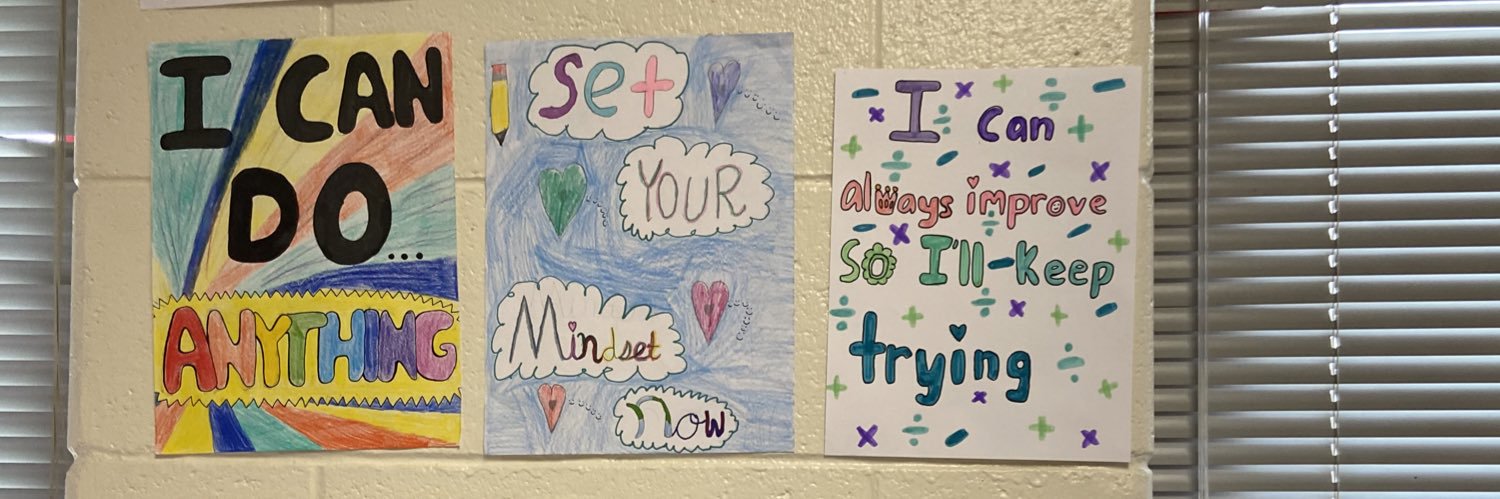 I CAN
DO...
ANYTHING
Set
YOUR
Mindset
now
I can
always improve
So I'll-keep
trying